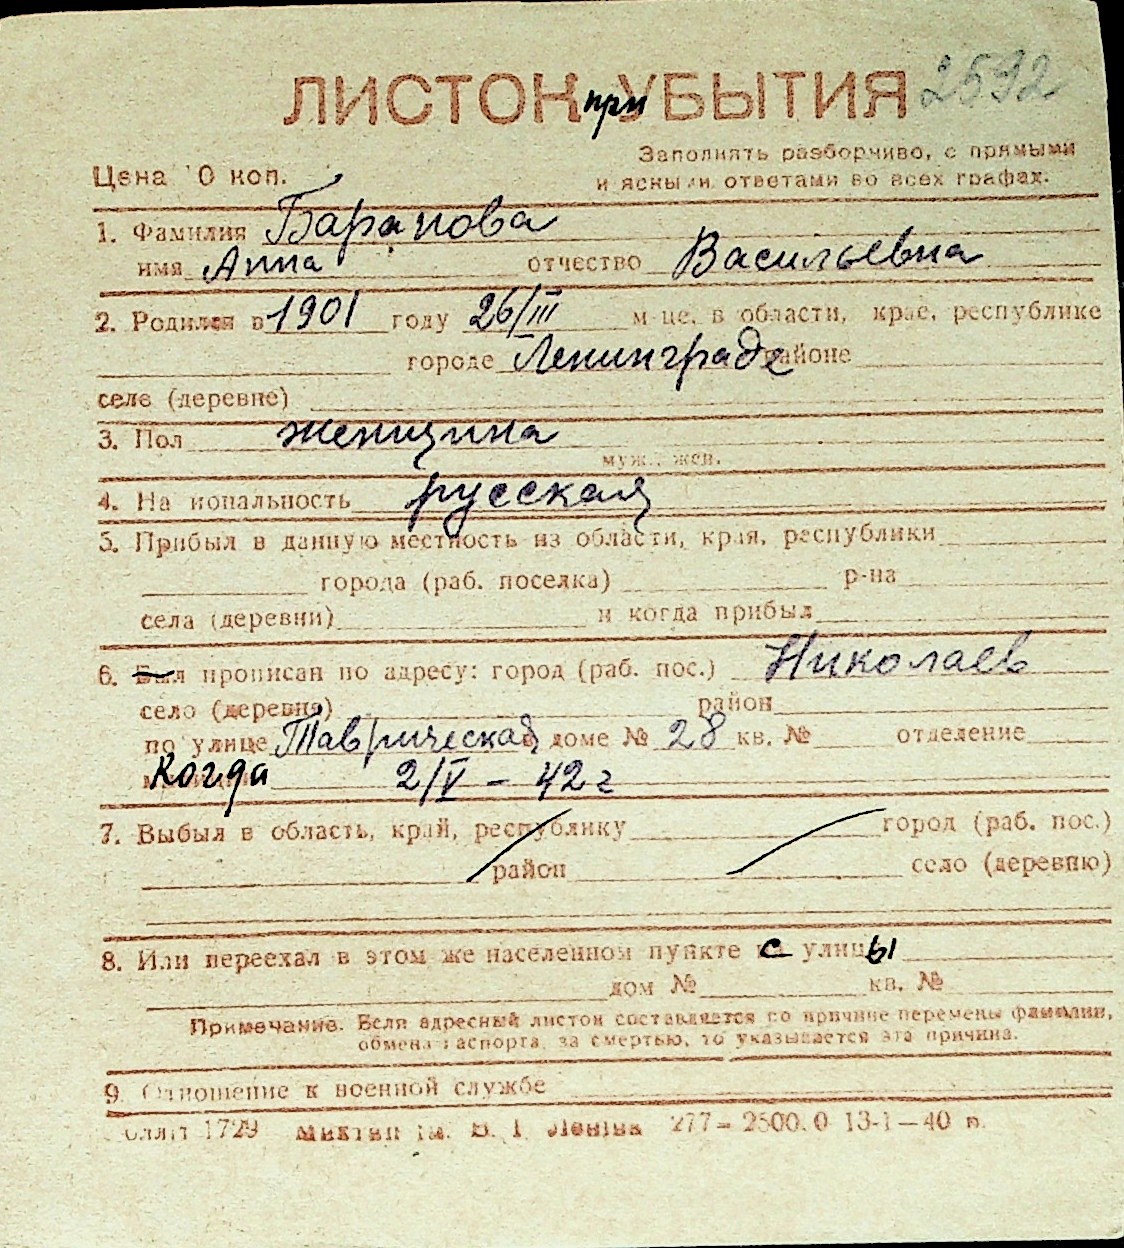 ЛИСТОК при УБЫТИЯ 2592
Цена 10 коп.
Заполнять разборчиво, с прямыми
и ясными ответами во всех графах.
1. Фамилия Баранова
имя Анна отчество Васильевна
2. Родился в 1901 году 26/III м-це, в области, крае, республике
городе Ленинграде районе
селе (деревне)
3. Пол женщина
муж., жен.
4. Национальность русская
5. Прибыл в данную местность из области, края, республики
города (раб. поселка) р-на
села (деревни) и когда прибыл
6. Был прописан по адресу: город (раб. пос.) Николаев
село (деревня) район
по улице Таврическая доме № 28 кв. № отделение
Когда 2/V – 42 г
7. Выбыл в область, край, республику город (раб. пос.)
район село (деревню)
8. Или переехал в этом же населенном пункте с улицы
дом № кв. №
Примечание. Если адресный листок составляется по причине перемены фамилии,
обмена паспорта, за смертью, то указывается эта причина.
9. Отношение к военной службе
1729 Ленiна 277–2500.0 13-1–40 р.